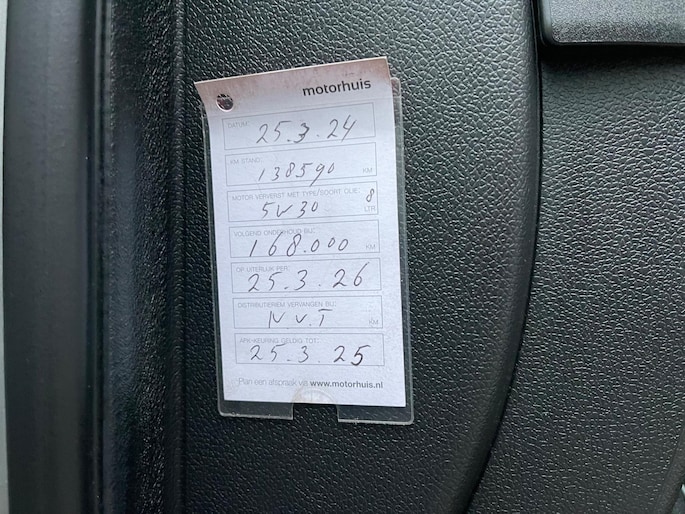 motorhuis
DATUM:
25.3.24
KM STAND:
138590 KM
MOTOR VERVERST MET TYPE/SOORT OLIE:
5W30 8 LTR
VOLGEND ONDERHOUD BIJ:
168.000 KM
OF UITERLIJK PER:
25.3.26
DISTRIBUTIERIEM VERVANGEN BIJ:
N.V.T KM
APK-KEURING GELDIG TOT:
25.3.25
Plan een afspraak via www.motorhuis.nl